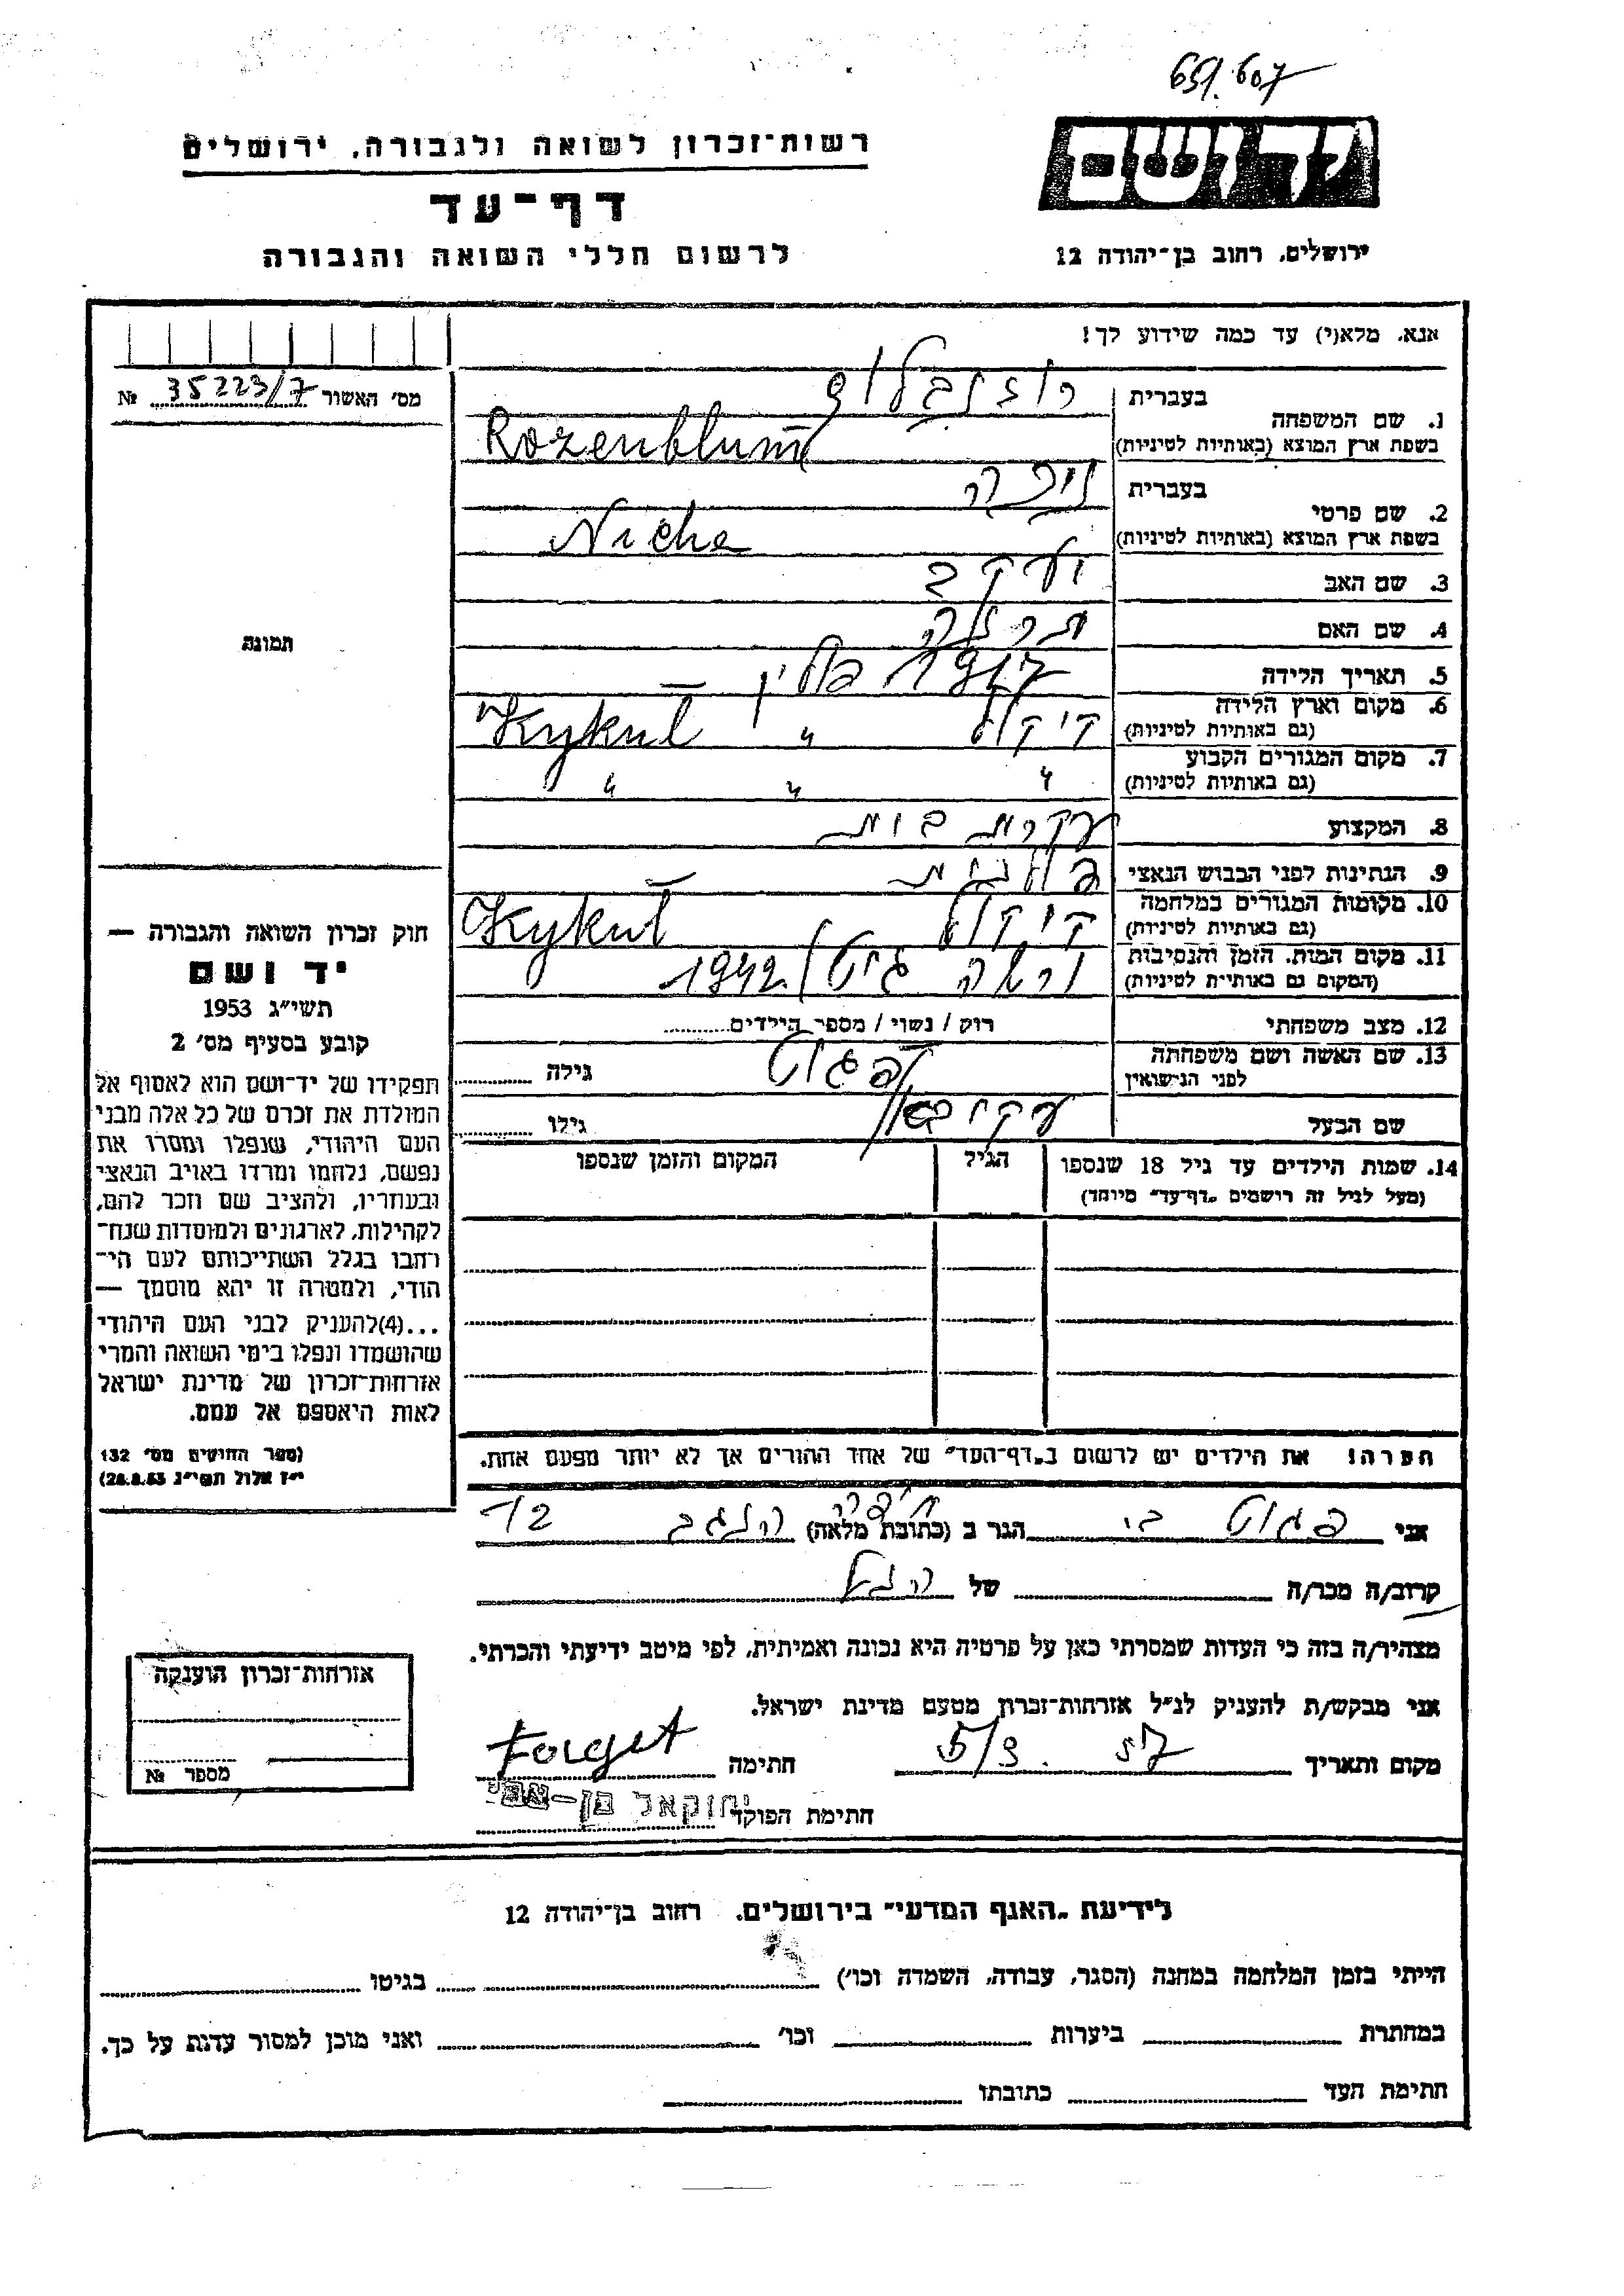 651.607
יד ושם
רשות־זכרון לשואה ולגבורה, ירושלים
דף־עד
לרשום חללי השואה והגבורה
ירושלים, רחוב בן־יהודה 12
אנא, מלא(י) עד כמה שידוע לך!
מס' האשור 35223/7 №
1. שם המשפחה
בעברית רוזנבלום
בשפת ארץ המוצא (באותיות לטיניות) Rozenblum
2. שם פרטי
בעברית
בשפת ארץ המוצא (באותיות לטיניות) Niche
3. שם האב יעקב
4. שם האם
5. תאריך הלידה 1917 פולין
6. מקום וארץ הלידה
(גם באותיות לטיניות) קיקול " Kykuł
7. מקום המגורים הקבוע
(גם באותיות לטיניות) " " "
8. המקצוע עקרת בית
9. הנתינות לפני הכבוש הנאצי פולנית
10. מקומות המגורים במלחמה
(גם באותיות לטיניות) קיקול Kykuł
11. מקום המות, הזמן והנסיבות
(המקום גם באותיות לטיניות) ורשה גיטו 1942
12. מצב משפחתי רוק / נשוי / מספר הילדים
13. שם האשה ושם משפחתה
לפני הנישואין פגוט גילה
שם הבעל עקיבא גילו
14. שמות הילדים עד גיל 18 שנספו הגיל המקום והזמן שנספו
(מעל לגיל זה רושמים "דף־עד" מיוחד)
הערה! את הילדים יש לרשום ב"דף־העד" של אחד ההורים אך לא יותר מפעם אחת.
תמונה
חוק זכרון השואה והגבורה —
יד ושם
תשי"ג 1953
קובע בסעיף מס' 2
תפקידו של יד־ושם הוא לאסוף אל
המולדת את זכרם של כל אלה מבני
העם היהודי, שנפלו ומסרו את
נפשם, נלחמו ומרדו באויב הנאצי
ובעוזריו, ולהציב שם וזכר להם,
לקהילות, לארגונים ולמוסדות שנח־
רבו בגלל השתייכותם לעם הי־
הודי, ולמטרה זו יהא מוסמך —
...(4)להעניק לבני העם היהודי
שהושמדו ונפלו בימי השואה והמרי
אזרחות־זכרון של מדינת ישראל
לאות היאספם אל עמם.
(ספר החוקים מס' 132
י"ז אלול תשי"ג 28.8.53)
אני פגוט הגר ב (כתובת מלאה) חיפה הנגב 12
קרוב/ה מכר/ה של הנ"ל
מצהיר/ה בזה כי העדות שמסרתי כאן על פרטיה היא נכונה ואמיתית, לפי מיטב ידיעתי והכרתי.
אני מבקש/ת להעניק לנ"ל אזרחות־זכרון מטעם מדינת ישראל.
מקום ותאריך 5/3. 57 חתימה
חתימת הפוקד יחזקאל בן-
אזרחות־זכרון הוענקה
מספר №
לידיעת "האגף המדעי" בירושלים, רחוב בן־יהודה 12
הייתי בזמן המלחמה במחנה (הסגר, עבודה, השמדה וכו') בגיטו
במחתרת ביערות וכו' ואני מוכן למסור עדות על כך.
חתימת העד כתובתו